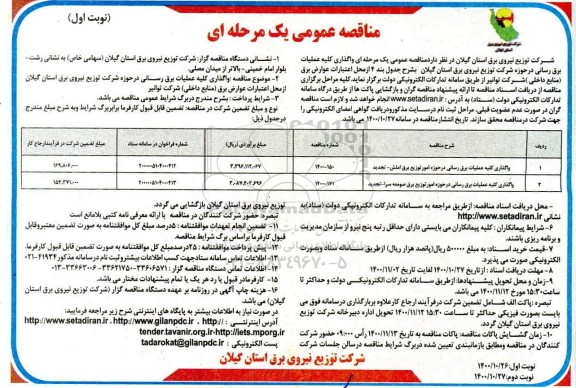 (نوبت اول)
مناقصه عمومی یک مرحله ای
شرکت توزیع نیروی برق استان گیلان در نظر دارد مناقصه یک مرحله ای واگذاری کلیه عملیات
برق رسانی در حوزه شرکت توزیع نیروی برق استان گیلان بشرح جدول بند ۲ از محل اعتبارات عوارض برق
(منابع داخلی) شرکت توانیر از طریق سامانه تدارکات الکترونیکی دولت برگزار نماید. کلیه مراحل برگزاری
مناقصه از دریافت اسناد مناقصه تا ارائه پیشنهاد مناقصه گران و بازگشایی پاکت ها از طریق درگاه سامانه
تدارکات الکترونیکی دولت (ستاد) به آدرس : www.setadiran.ir انجام خواهد شد و لازم است مناقصه
گران در صورت عدم عضویت قبلی، مراحل ثبت نام در سایت مذکور و دریافت گواهی امضای الکترونیکی را
جهت شرکت در مناقصه محقق سازند. تاریخ انتشار مناقصه در سامانه ۱۴۰۰/۱۰/۲۷ می باشد.
۱- نشانی دستگاه مناقصه گزار: شرکت توزیع نیروی برق استان گیلان (سهامی خاص) به نشانی رشت-
بلوار امام خمینی- بالاتر از میدان مصلی.
۲- موضوع مناقصه: واگذاری کلیه عملیات برق رسانی در حوزه شرکت توزیع نیروی برق استان گیلان
از محل اعتبارات عوارض برق (منابع داخلی) شرکت توانیر
۳- شرایط پرداخت : بشرح مندرج در برگ شرایط عمومی مناقصه می باشد.
نوع و مبلغ تضمین شرکت در مناقصه: تضمین قابل قبول کارفرما برابر برگ شرایط وبه شرح مبلغ مندرج
در جدول ذیل:
ردیف شرح مناقصه شماره مناقصه مبلغ برآوردی (ریال) شماره فراخوان در سامانه ستاد مبلغ تضمین شرکت در فرآیند ارجاع کار
۱ واگذاری کلیه عملیات برق رسانی در حوزه امور توزیع برق املش- تجدید ۱۴۰۰-۱۵۰
۲ واگذاری کلیه عملیات برق رسانی در حوزه امور توزیع برق صومعه سرا- تجدید ۱۴۰۰-۱۷۲
- محل دریافت اسناد مناقصه: از طریق مراجعه به سامانه تدارکات الکترونیکی دولت (ستاد) به
نشانی http://www.setadiran.ir
۶- شرایط پیمانکاران : کلیه پیمانکاران می بایستی دارای حداقل رتبه پنج نیرو از سازمان مدیریت
و برنامه ریزی باشند.
۷- قیمت خرید اسناد: به مبلغ ۵۰۰۰۰۰ ریال (پانصد هزار ریال) از طریق سامانه ستاد و بصورت
الکترونیکی صورت می پذیرد.
۸- مهلت دریافت اسناد : از تاریخ ۱۴۰۰/۱۰/۲۷ لغایت تاریخ ۱۴۰۰/۱۱/۰۲
۹- زمان و محل تحویل پیشنهادها: از طریق سامانه تدارکات الکترونیکی دولت و حداکثر تا
ساعت ۱۵:۳۰ مورخ ۱۴۰۰/۱۱/۱۲ می باشد.
تبصره: پاکت الف شامل تضمین شرکت در فرآیند ارجاع کار علاوه بر بارگذاری در سامانه فوق می
بایست بصورت فیزیکی حداکثر تا ساعت ۱۵:۳۰ مورخ ۱۴۰۰/۱۱/۱۲ تحویل اداره دبیرخانه شرکت توزیع
نیروی برق استان گیلان گردد.
۱۰- زمان گشایش پاکات مناقصه: پاکات مناقصه در تاریخ ۱۴۰۰/۱۱/۱۳ رأس ۰۹:۰۰ حضور شرکت
کنندگان در مناقصه و مطابق بازه زمانبندی تعیین شده در برگ شرایط مناقصه در سالن جلسات شرکت
توزیع نیروی برق استان گیلان بازگشایی می گردد.
تبصره: حضور شرکت کنندگان در مناقصه با ارائه معرفی نامه کتبی بلامانع است
۱۱- تضمین انجام تعهدات موافقتنامه : ۵ درصد مبلغ کل موافقتنامه به صورت تضمین معتبر و قابل
قبول کارفرما براساس برگ شرایط مناقصه.
۱۲- پیش پرداخت موافقتنامه : ۲۵ درصد مبلغ کل موافقتنامه به صورت تضمین قابل قبول کارفرما
۱۳- اطلاعات تماس سامانه ستاد جهت کسب اطلاعات بیشتر و ثبت نام در سامانه مذکور ۴۱۹۳۴-۰۲۱
۱۴- اطلاعات تماس دستگاه مناقصه گزار :
۱۵- کارفرما در قبول یا رد هر یک یا تمام پیشنهادات مختار می باشد.
۱۶- هزینه چاپ آگهی در روزنامه بر عهده دستگاه مناقصه گزار (شرکت توزیع نیروی برق استان
گیلان) می باشد.
در صورت نیاز به اطلاعات بیشتر به پایگاه های اینترنتی شرح زیر مراجعه فرمایید:
آدرس اینترنتی : http://www.setadiran.ir ، http://www.gilanpdc.ir ، http://
tender.tavanir.org.ir-http://iets.mporg.ir
پست الکترونیکی : tadarokat@gilanpdc.ir
شرکت توزیع نیروی برق استان گیلان
نوبت اول: ۱۴۰۰/۱۰/۲۶
نوبت دوم: ۱۴۰۰/۱۰/۲۷